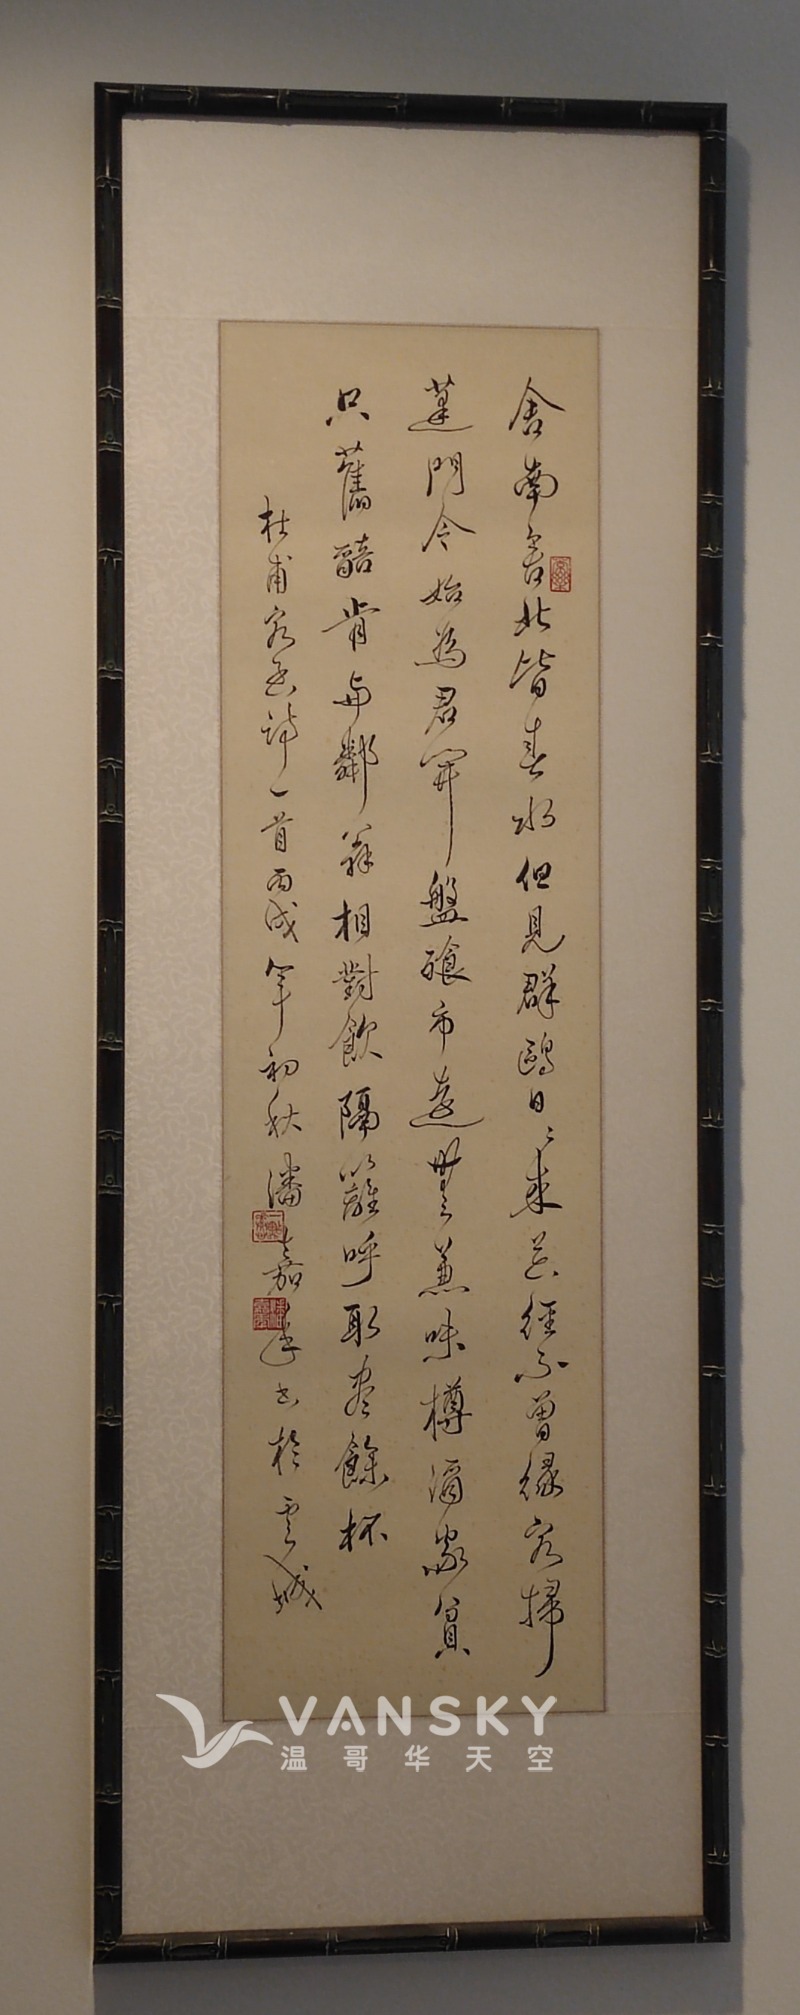 舍南舍北皆春水但見群鷗日々来花徑不曾緣客掃
蓬門今始為君開盤飧市遠無兼味樽酒家貧
只舊醅肯與鄰翁相對飲隔籬呼取盡餘杯
杜甫客至詩一首丙戌年初秋潘嘉年書於雲城
VANSKY
温哥华天空